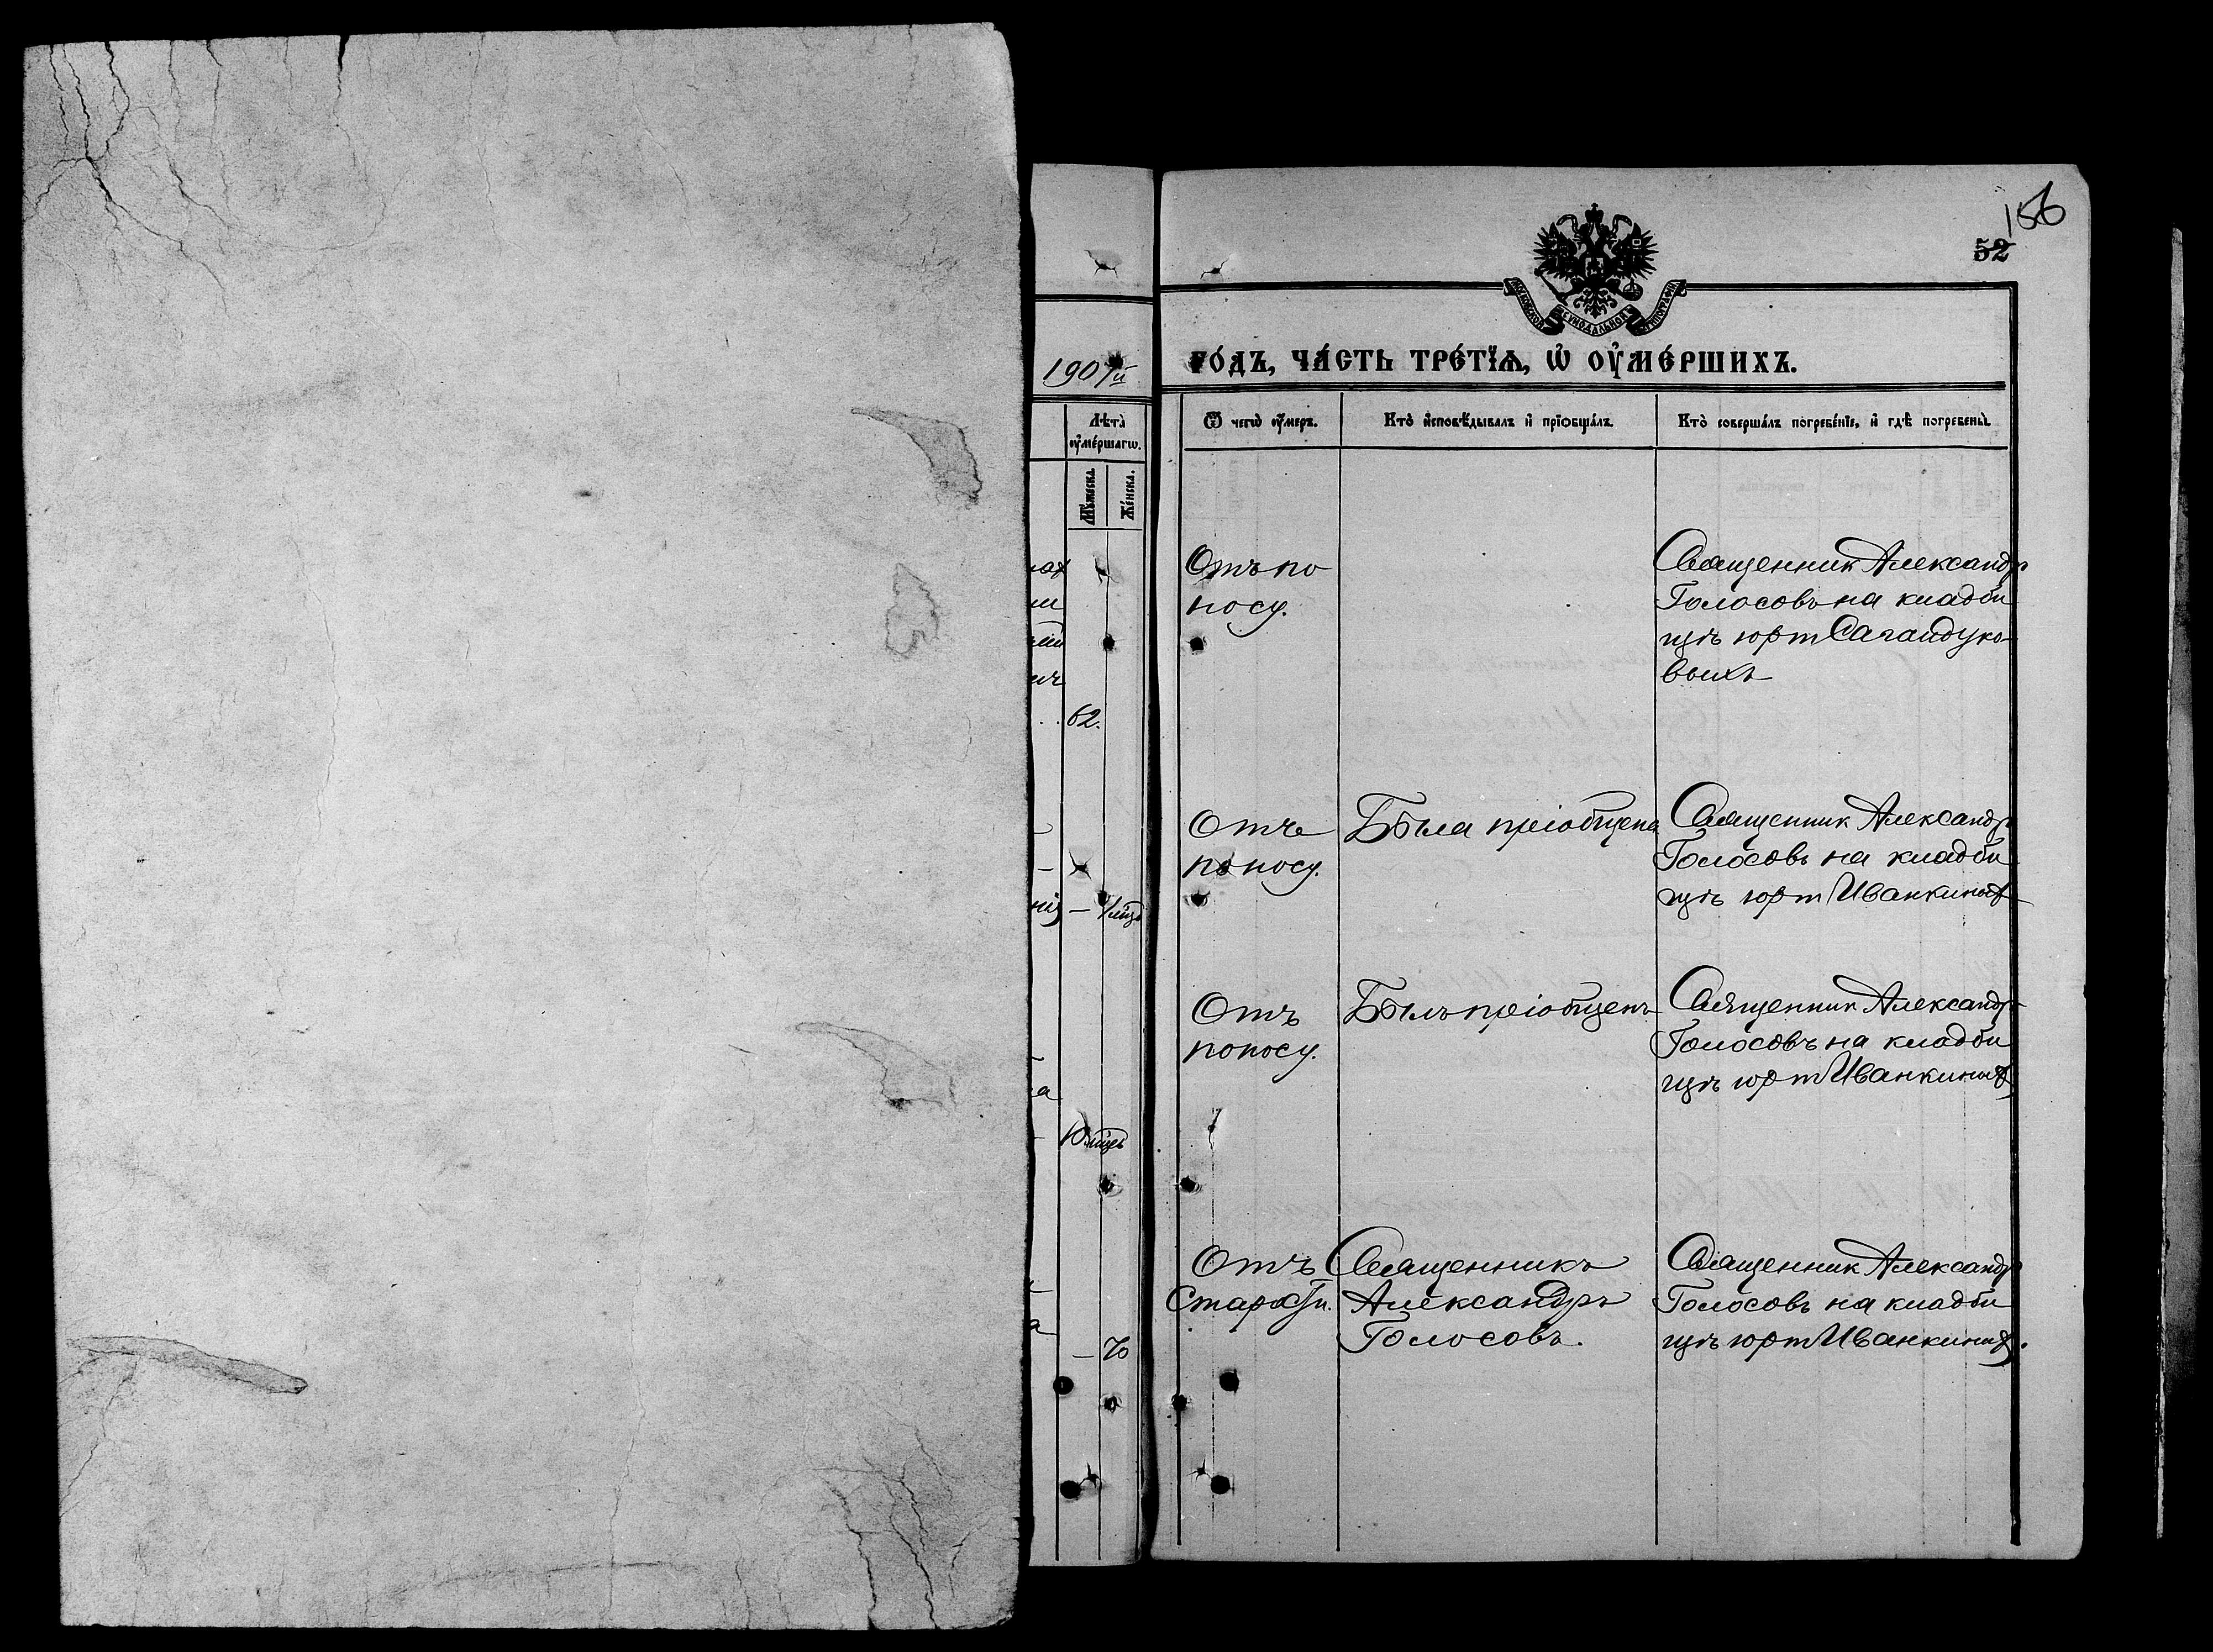 156
52
МОСКОВСКОЙ СУНОДАЛЬНОЙ ТИПОГРАФІИ
1907й
го́дъ, ча́сть тре́тїѧ, ѡ҆ ᲂу҆ме́ршихъ.
Лѣта̀ ᲂу҆ме́ршагѡ.
Мꙋ́жеска.
Же́нска.
Ѿ чегѡ̀ ᲂу҆́меръ.
Кто̀ и҆сповѣ́дывалъ и҆ прїѡбща́лъ.
Кто̀ соверша́лъ погребе́нїе, и҆ гдѣ̀ погребены̀.
62.
Отъ по
носу.
Священник Александр
Голосовъ на кладби
щѣ юрт Сагандуко-
выхъ
— 1 мѣц
Отъ
поносу.
Была пріобщена
Священник Александръ
Голосовъ на кладби
щѣ юрт Иванкиных
10 мѣцъ
Отъ
поносу.
Былъ пріобщенъ
Священник Александр
Голосовъ на кладби
щѣ юрт Иванкиных
— 70
Отъ
Старости.
Священникъ
Александръ
Голосовъ.
Священник Александр
Голосовъ на кладби
щѣ юрт Иванкиных.